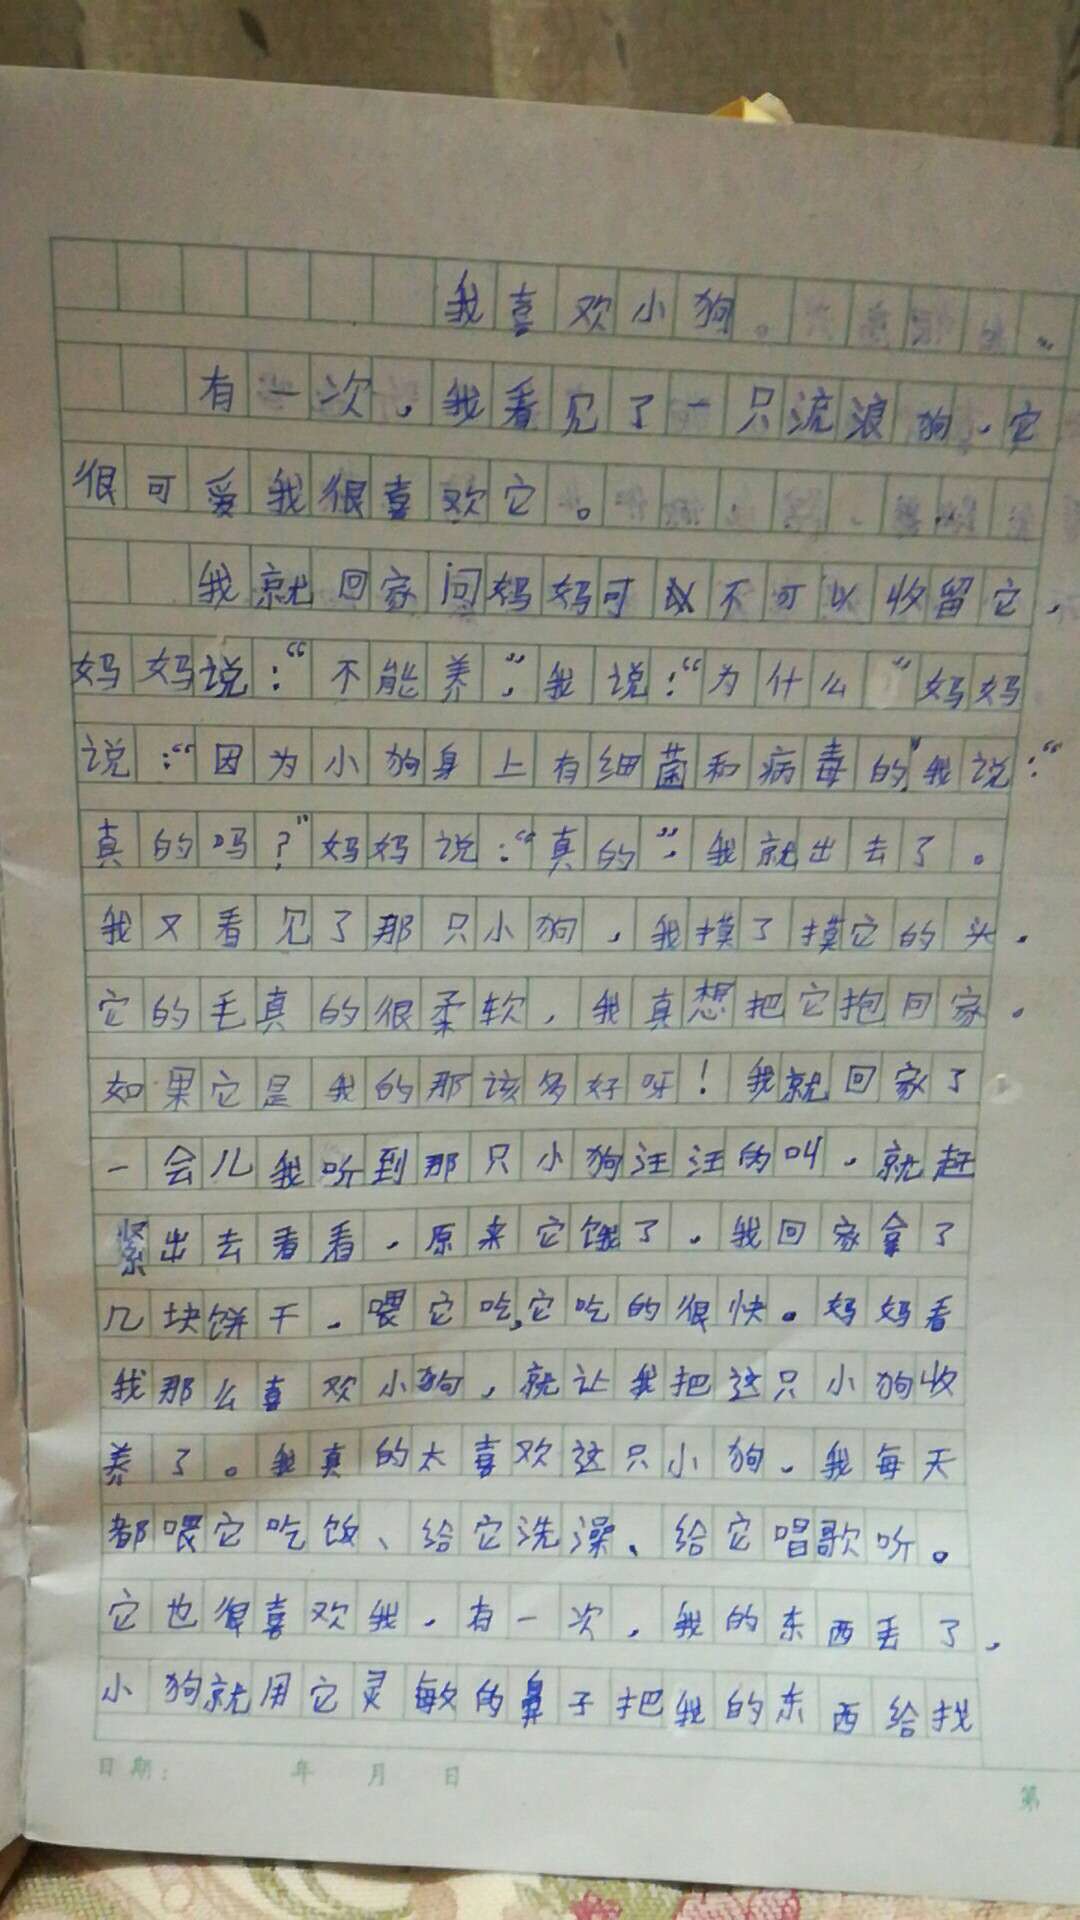 我喜欢小狗。
有一次,我看见了一只流浪狗,它
很可爱我很喜欢它。
我就回家问妈妈可以不可以收留它,
妈妈说:“不能养”,我说:“为什么”妈妈
说:“因为小狗身上有细菌和病毒的”我说:“
真的吗?”妈妈说:“真的”,我就出去了。
我又看见了那只小狗,我摸了摸它的头,
它的毛真的很柔软,我真想把它抱回家。
如果它是我的那该多好呀!我就回家了
一会儿我听到那只小狗汪汪的叫,就赶
紧出去看看,原来它饿了,我回家拿了
几块饼干,喂它吃,它吃的很快。妈妈看
我那么喜欢小狗,就让我把这只小狗收
养了。我真的太喜欢这只小狗,我每天
都喂它吃饭、给它洗澡、给它唱歌听。
它也很喜欢我,有一次,我的东西丢了,
小狗就用它灵敏的鼻子把我的东西给找
日期: 年 月 日
第